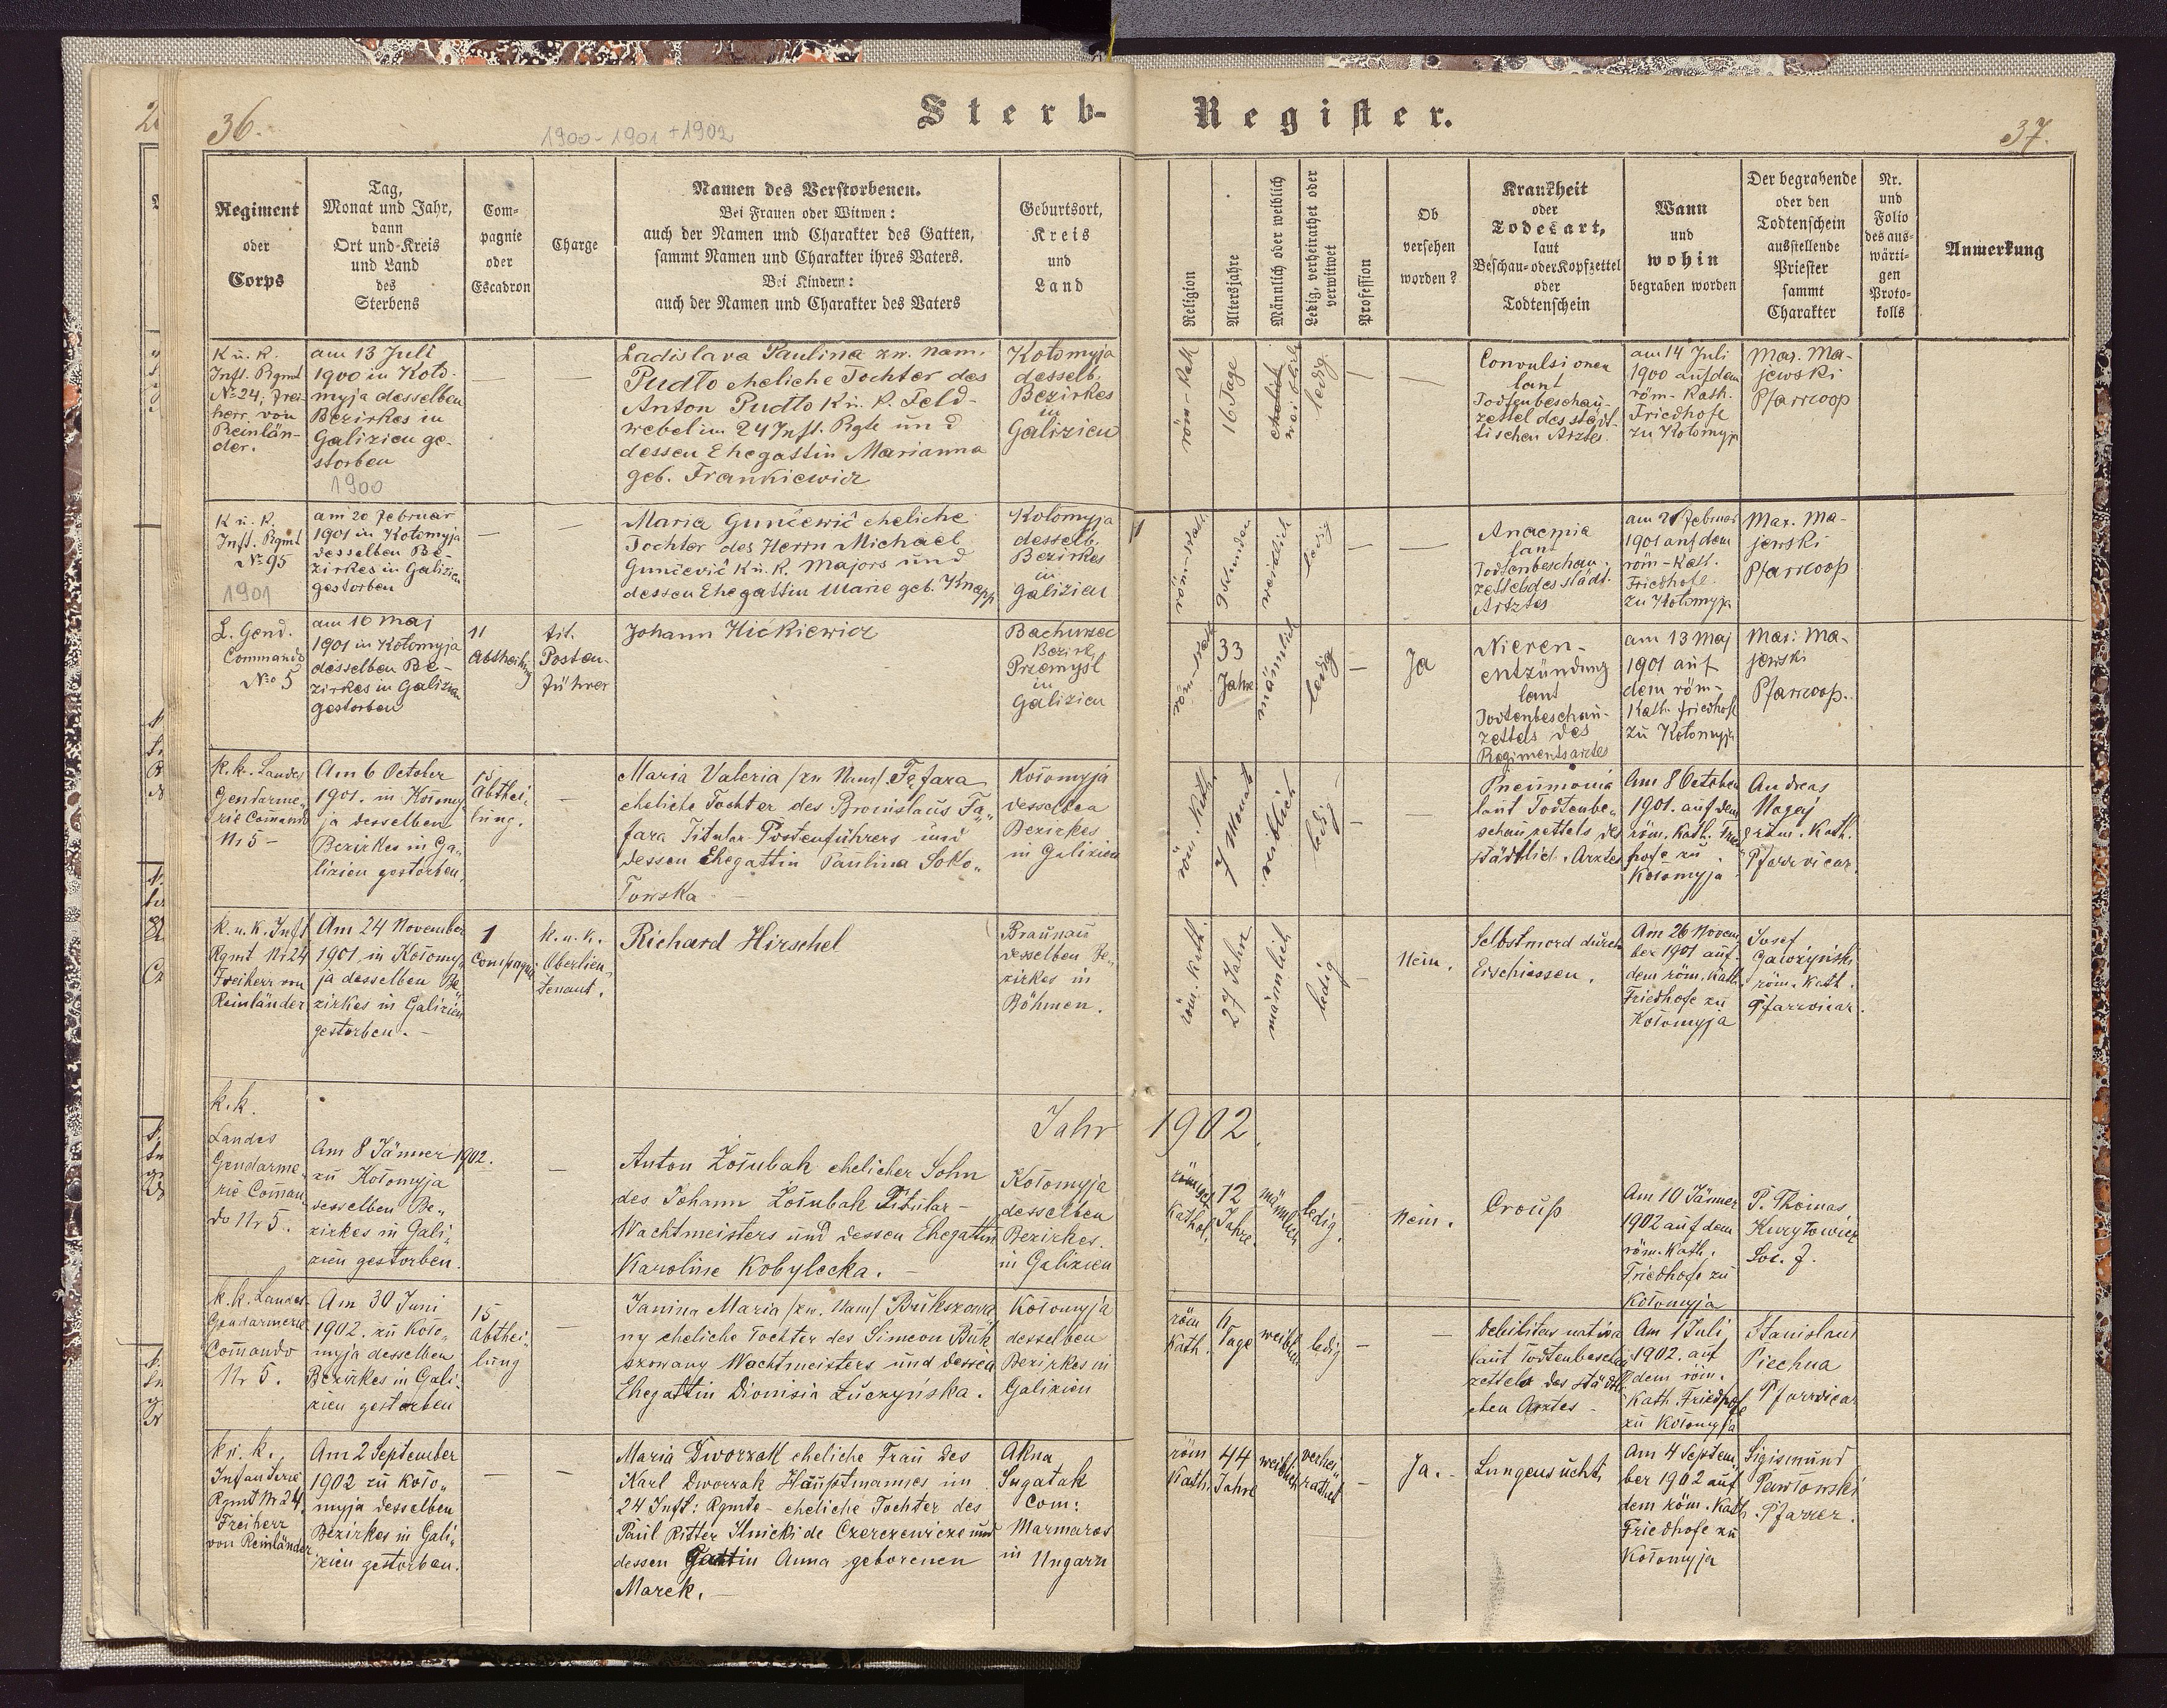 36.
1900-1901+1902
Sterb-
Register.
37.
Regiment
oder
Corps
Tag,
Monat und Jahr,
dann
Ort und Kreis
und Land
des
Sterbens
Com-
pagnie
oder
Escadron
Charge
Namen des Verstorbenen.
Bei Frauen oder Witwen:
auch der Namen und Charakter des Gatten,
sammt Namen und Charakter ihres Vaters.
Bei Kindern:
auch der Namen und Charakter des Vaters
Geburtsort,
Kreis
und
Land
Religion
Altersjahre
Männlich oder weiblich
Ledig, verheirathet oder
verwitwet
Profession
Ob
versehen
worden?
Krankheit
oder
Todesart,
laut
Beschau- oder Kopfzettel
oder
Todtenschein
Wann
und
wohin
begraben worden
Der begrabende
oder den
Todtenschein
ausstellende
Priester
sammt
Charakter
Nr.
und
Folio
des aus-
wärti-
gen
Proto-
kolls
Anmerkung
K u. K.
Inft. Rgmt
No 24, Frei-
herr von
Reinlän-
der.
am 13 Juli
1900 in Koło-
myja desselben
Bezirkes in
Galizien ge-
storben
1900
—
—
Ladislava Paulina zw. Nam.
Pudło eheliche Tochter des
Anton Pudło K u. K. Feld-
webel im 24 Inft. Rgte und
dessen Ehegattin Marianna
geb. Frankiewicz
Kołomyja
desselb.
Bezirkes
in
Galizien
röm-kath
16 Tage
weiblich
ledig
—
—
Convulsionen
laut
Todtenbeschau-
zettel des städ-
tischen Arztes
am 14 Juli
1900 auf dem
röm-kath.
Friedhofe
zu Kołomyja
Mar. Ma-
jewski
Pfarrcoop
K u. K.
Inft. Rgmt
No 95
1901
am 20 Februar
1901 in Kołomyja
desselben Be-
zirkes in Galizien
gestorben
—
—
Maria Gunčewič eheliche
Tochter des Herrn Michael
Gunčević K u. K. Majors und
dessen Ehegattin Marie geb. Knapp
Kołomyja
desselb.
Bezirkes
in
Galizien
röm-kath.
9 Stunden
weiblich
ledig
—
—
Anaemia
laut
Todtenbeschau-
zettel des städt.
Arztes
am 21 Februar
1901 auf dem
röm-kath.
Friedhofe
zu Kołomyja
Mar. Ma-
jewski
Pfarrcoop
L. Gend.
Commando
No 5
am 10 Maj
1901 in Kołomyja
desselben Be-
zirkes in Galizien
gestorben
11
Abtheilung
tit.
Posten-
führer
Johann Hickiewicz
Bachurzec
Bezirk
Przemyśl
in
Galizien
röm-kath
33
Jahre
männlich
ledig
—
Ja
Nieren-
entzündung
laut
Todtenbeschau-
zettels des
Regimentsarztes
am 13 Maj
1901 auf
dem röm-
kath. Friedhofe
zu Kołomyja
Mar. Ma-
jewski
Pfarrcoop.
k.k. Landes
Gendarme„
rie Comando
Nr 5 -
Am 6 October
1901. in Kołomy„
ja desselben
Bezirkes in Ga„
lizien gestorben.
15
Abthei„
lung.
—
Maria Valeria /zw Nam/ Fąfara
eheliche Tochter des Bronislaus Fą„
fara Titular-Postenführers und
dessen Ehegattin Paulina Soko„
łowska
Kołomyja
desselben
Bezirkes
in Galizien
röm. kath.
7 Monate
weiblich
ledig
—
—
Pneumonia
laut Todtenbe„
schauzettels des
städtlich. Arztes
Am 8 October
1901. auf dem
röm. kath. Fried„
hofe zu
Kołomyja
Andreas
röm. kath.
Pfarrvicar.
k. u. k. Inft
Rgmt Nr 24
Freiherr von
Reinländer
Am 24 November
1901. in Kołomy„
ja desselben Be„
zirkes in Galizien
gestorben. -
1
Compagnie
k. u. k.
Oberlieu„
tenant.
Richard Hirschel
Braunau
desselben Be„
zirkes in
Böhmen.
röm. kath.
27 Jahre
männlich
ledig
—
Nein.
Selbstmord durch
Erschiessen.
Am 26 Novem„
ber 1901 auf
dem röm. kath.
Friedhofe zu
Kołomyja
Josef
röm. kath.
Pfarrvicar.
Jahr 1902.
k. k.
Landes
Gendarme„
rie Coman„
do Nr 5.
Am 8 Jänner 1902.
zu Kołomyja
desselben Be„
zirkes in Gali„
zien gestorben.
—
Anton Żołubak ehelicher Sohn
des Johann Żołubak Titular-
Wachtmeisters und dessen Ehegattin
Karoline Kobylecka. -
Kołomyja
desselben
Bezirkes.
in Galizien
kathol.
12
Jahre.
männlich
ledig.
—
Nein.
Croup
Am 10 Jänner
1902 auf dem
röm-kath.
Friedhofe zu
Kołomyja
P. Thomas
Kuryłowicz
Soc. J.
k. k. Landes
Gendarmerie
Comando
Nr 5.
Am 30 Juni
1902. zu Koło„
myja desselben
Bezirkes in Gali„
zien gestorben
15
Abthei„
lung
—
Janina Maria /zw. Nam/ Bukszowa„
ny eheliche Tochter des Simeon Buk
szowany Wachtmeisters und dessen
Ehegattin Dionisia Łuczyńska.
Kołomyja
desselben
Bezirkes in
Galizien
röm
kath.
6
Tage
weiblich
ledig
—
—
Debilitas nativa
laut Todtenbeschau
zettels des städtli
chen Arztes -
Am 1 Juli
1902. auf
dem röm.
kath. Friedhofe
zu Kołomyja
Stanislaus
Piechna
Pfarrvicar
k. u. k.
Infanterie
Rgmt Nr 24.
Freiherr
von Reinländer
Am 2 September
1902 zu Koło„
myja desselben
Bezirkes in Gali„
zien gestorben.
—
—
Maria Dworzak eheliche Frau des
Karl Dworzak Hauptmannes im
24 Inft: Rgmte - eheliche Tochter des
Paul Ritter Ilnicki de Czerczewicze und
dessen Gattin Anna geborenen
Marek. -
Akna
Sugatak
Com:
Marmaros
in Ungarn
röm
kath.
44
Jahre
weiblich
verhei„
rathet
—
Ja. -
Lungensucht
Am 4 Septem„
ber 1902 auf
dem röm. kath.
Friedhofe zu
Kołomyja
Sigismund
Pawłowski
Pfarrer.